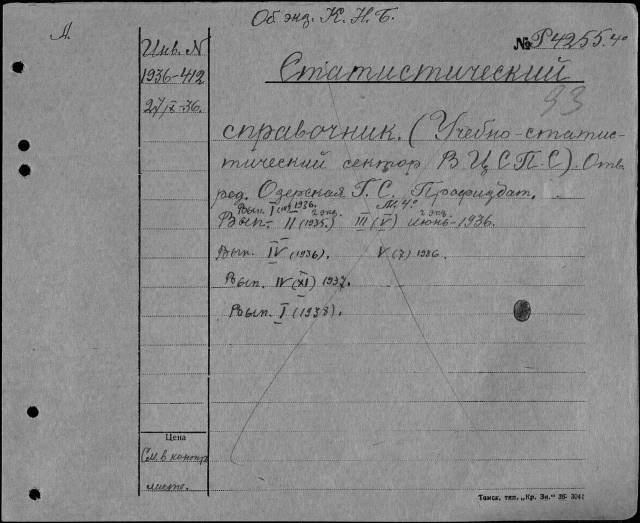 Об экз. К. Н. Б.
А.
№ Р4255.4°
Инв. N
1936-412
27/IX-36.
Статистический
93
справочник. (Учебно-статис-
тический сектор ВЦСПС). Отв.
ред. Одерская Г. С. Профиздат.
Вып. I 1936. М. 4°
Вып. II (1935.) 2 экз. III (V) 2 экз. июнь-1936.
Вып. IV (1936). V (7) 1936.
Вып. IV (XI) 1937.
Вып. I (1938).
Цена
См. в контр
листе.
Томск, тип. „Кр. Зн." 36-3041